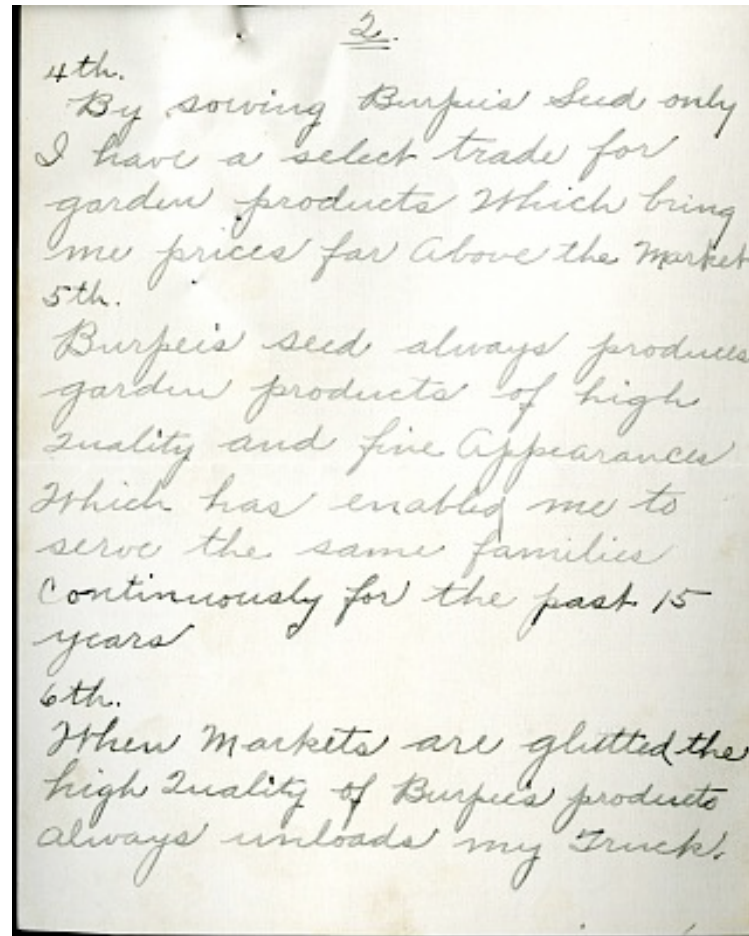 2.
4th.
By sowing Burpee's Seed only
I have a select trade for
garden products Which bring
me prices far Above the Market
5th.
Burpee's seed always produces
garden products of high
Quality and fine Appearances
Which has enabled me to
serve the same families
Continuously for the past 15
years
6th.
When Markets are glutted the
high Quality of Burpee's products
Always unloads my Truck.